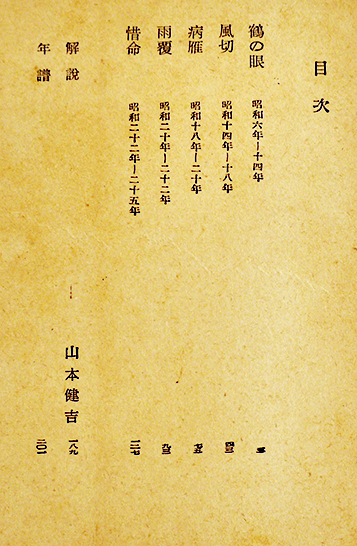 目次
鶴の眼 昭和六年―十四年
風切 昭和十四年―十八年 四三
病雁 昭和十八年―二十年
雨覆 昭和二十年―二十二年 九三
惜命 昭和二十二年―二十五年 一二七
解説 山本健吉 一八九
年譜 二〇一